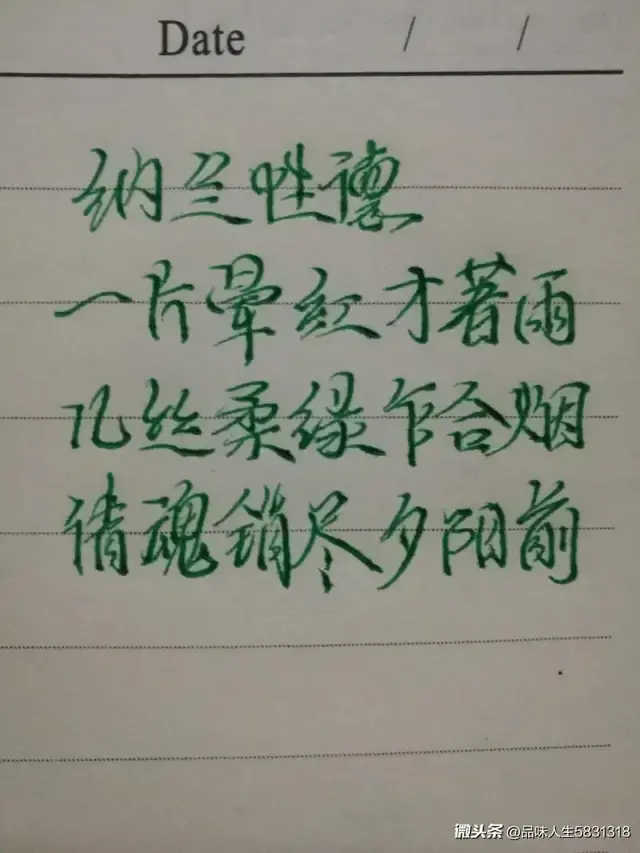 Date / /
纳兰性德
一片晕红才著雨
几丝柔绿乍合烟
倩魂销尽夕阳前
微头条 @品味人生5831318